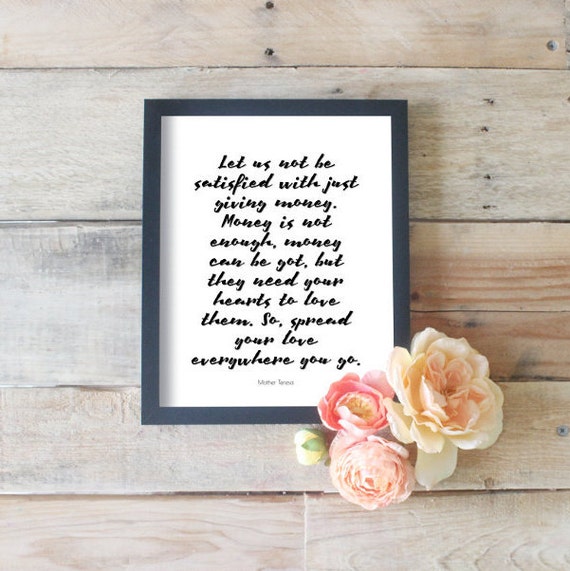 Let us not be
satisfied with just
giving money.
Money is not
enough, money
can be got, but
they need your
hearts to love
them. So, spread
your love
everywhere you go.
Mother Teresa